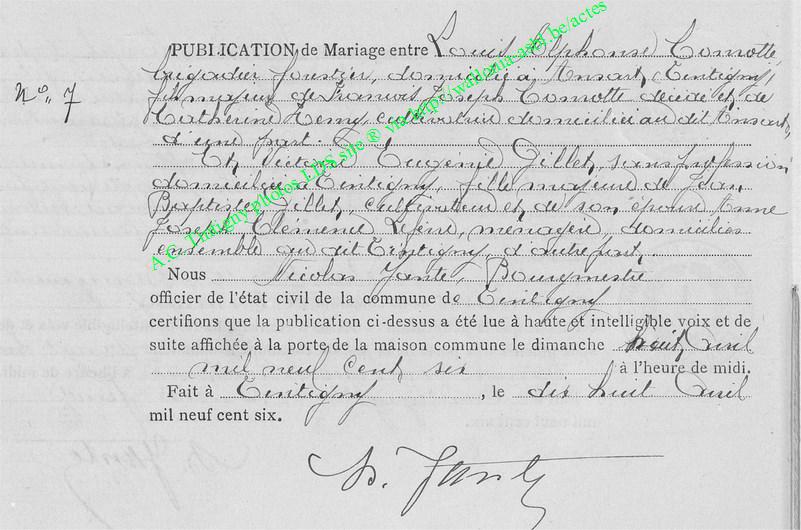 PUBLICATION de Mariage entre Louis Alphonse Comotte
brigadier forestier, domicilié à Ansart, Tintigny,
N° 7
fils majeur de François Joseph Comotte décédé et de
Catherine cultivatrice domiciliée au dit Ansart,
d'une part.
Et Victorine Eugénie Gillet, sans profession
domiciliée à Tintigny, fille majeure de Jean
Baptiste Gillet, cultivateur et de son épouse Anne
Joseph Clémence ménagère, domiciliés
ensemble au dit Tintigny, d'autre part.
Nous Nicolas Bourgmestre
officier de l'état civil de la commune de Tintigny
certifions que la publication ci-dessus a été lue à haute et intelligible voix et de
suite affichée à la porte de la maison commune le dimanche huit Avril
mil neuf cent six à l'heure de midi.
Fait à Tintigny, le dix huit Avril
mil neuf cent six.
A.C. Tintigny photos LDS site ® via http://wallonia-asbl.be/actes